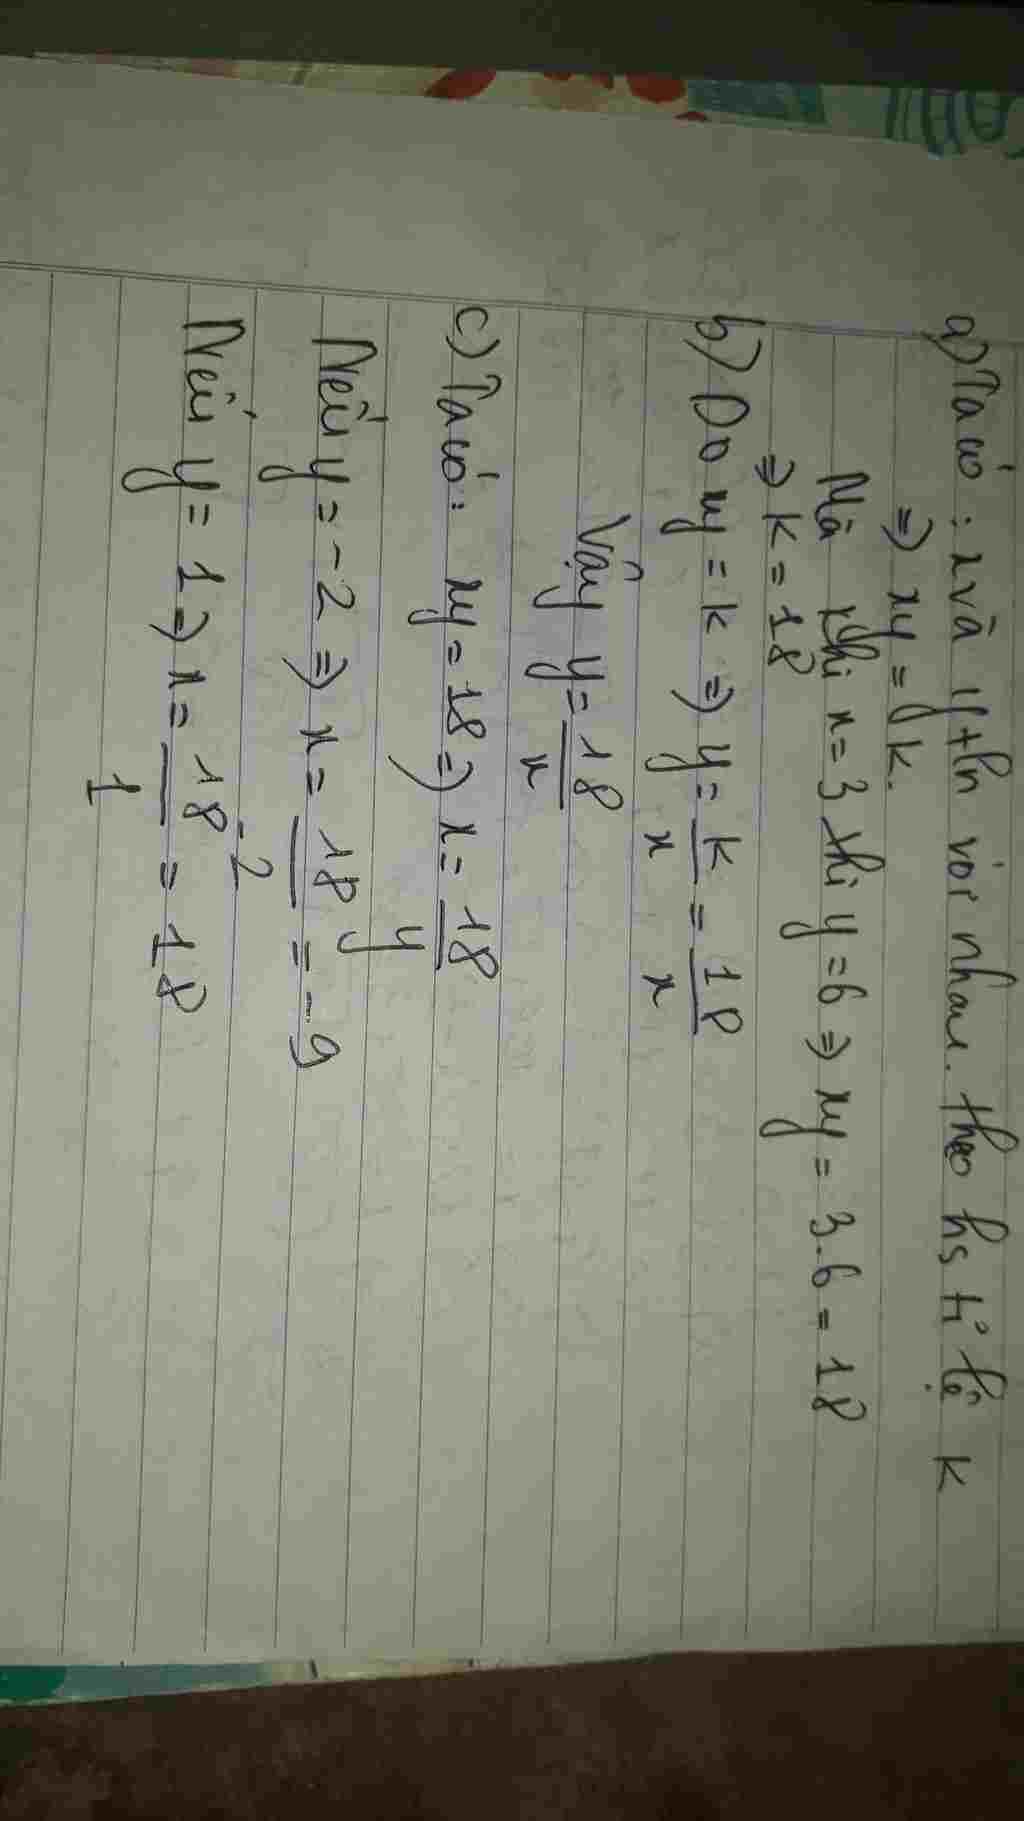 a) Ta có: x và y tln với nhau. theo hs tỉ lệ k
=> xy = k.
Mà khi x = 3 thì y = 6 => xy = 3.6 = 18
=> k = 18
b) Do xy = k => y = k/x = 18/x
Vậy y = 18/x
c) Ta có: xy = 18 => x = 18/y
Nếu y = -2 => x = 18/-2 = -9
Nếu y = 1 => x = 18/1 = 18